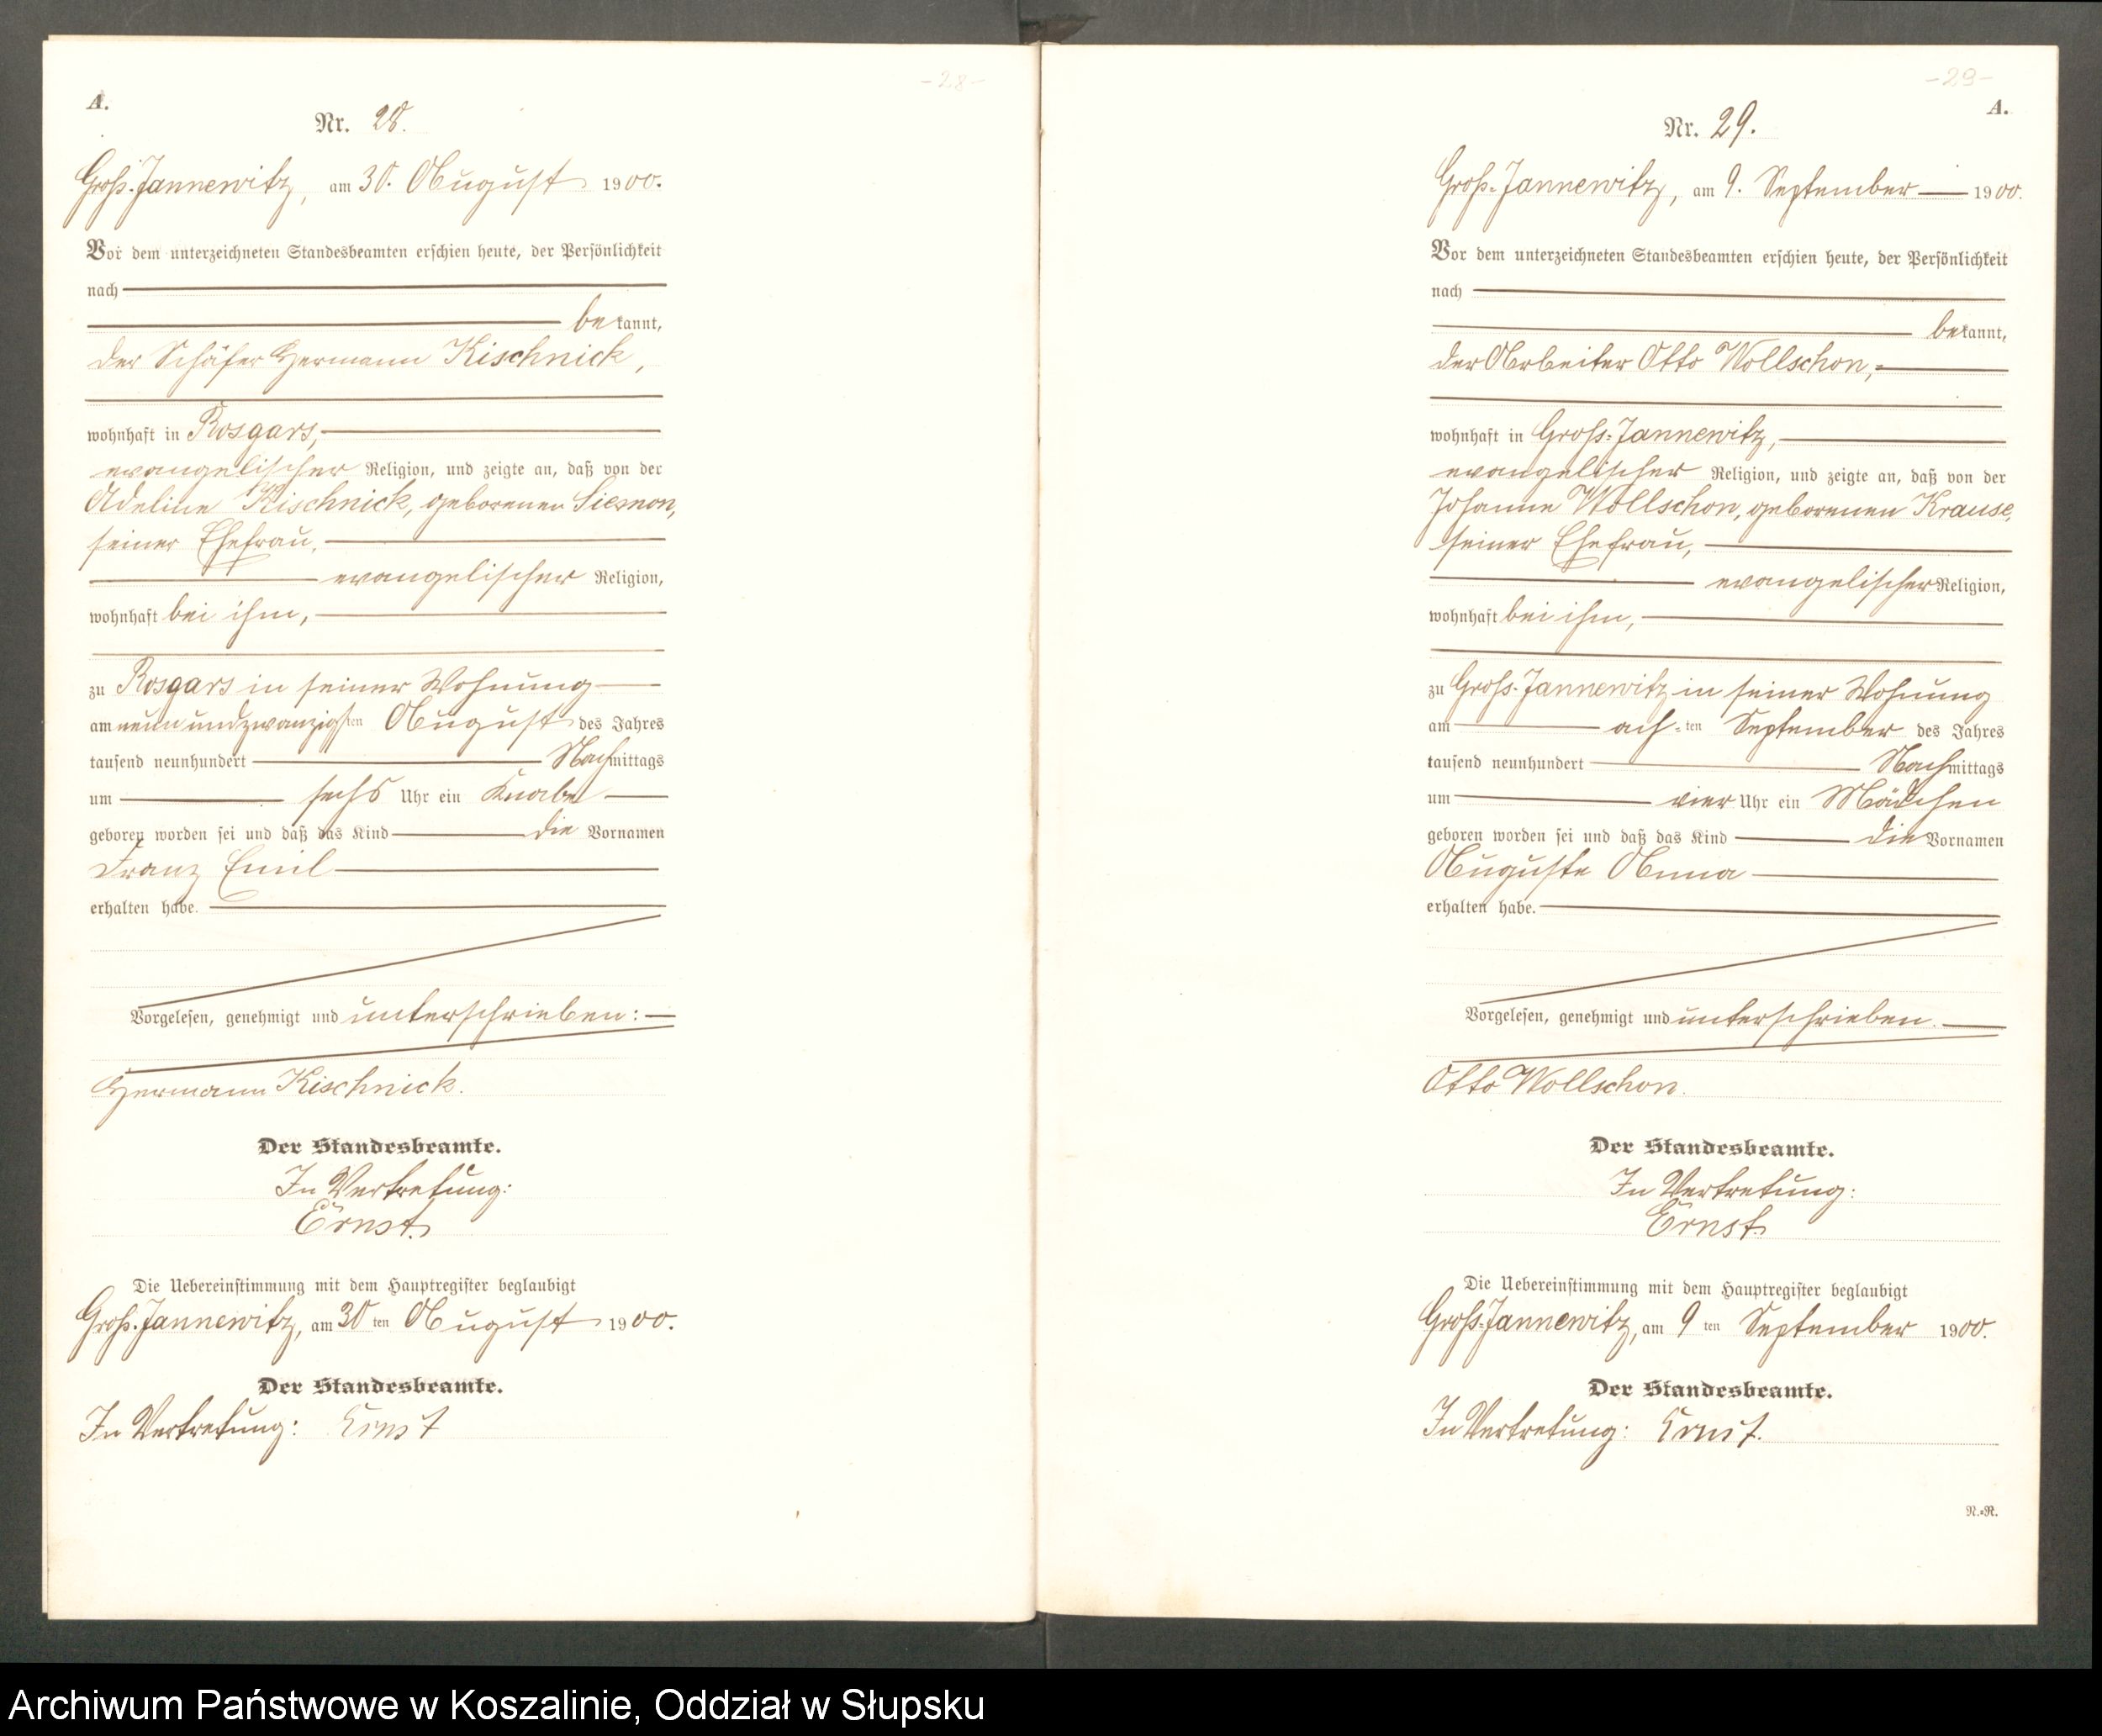 -28-
A.
Nr. 28.
Groß-Jannewitz, am 30. August 1900.
Vor dem unterzeichneten Standesbeamten erschien heute, der Persönlichkeit
nach
bekannt,
der Schäfer Hermann Kischnick,
wohnhaft in Rosgars,
evangelischer Religion, und zeigte an, daß von der
Adeline Kischnick, geborenen Siemon,
seiner Ehefrau,
evangelischer Religion,
wohnhaft bei ihm,
zu Rosgars in seiner Wohnung
am neunundzwanzigsten August des Jahres
tausend neunhundert Nachmittags
um sechs Uhr ein Knabe
geboren worden sei und daß das Kind die Vornamen
Franz Emil
erhalten habe.
Vorgelesen, genehmigt und unterschrieben:
Hermann Kischnick.
Der Standesbeamte.
In Vertretung:
Ernst.
Die Uebereinstimmung mit dem Hauptregister beglaubigt
Groß-Jannewitz, am 30ten August 1900.
Der Standesbeamte.
In Vertretung: Ernst
-29-
A.
Nr. 29.
Groß-Jannewitz, am 9. September 1900.
Vor dem unterzeichneten Standesbeamten erschien heute, der Persönlichkeit
nach
bekannt,
der Arbeiter Otto Wollschon,
wohnhaft in Groß-Jannewitz,
evangelischer Religion, und zeigte an, daß von der
Johanne Wollschon, geborenen Krause,
seiner Ehefrau,
evangelischer Religion,
wohnhaft bei ihm,
zu Groß-Jannewitz in seiner Wohnung
am ach-ten September des Jahres
tausend neunhundert Nachmittags
um vier Uhr ein Mädchen
geboren worden sei und daß das Kind die Vornamen
Auguste Anna
erhalten habe.
Vorgelesen, genehmigt und unterschrieben.
Otto Wollschon.
Der Standesbeamte.
In Vertretung:
Ernst.
Die Uebereinstimmung mit dem Hauptregister beglaubigt
Groß-Jannewitz, am 9ten September 1900.
Der Standesbeamte.
In Vertretung: Ernst.
N.=R.
Archiwum Państwowe w Koszalinie, Oddział w Słupsku